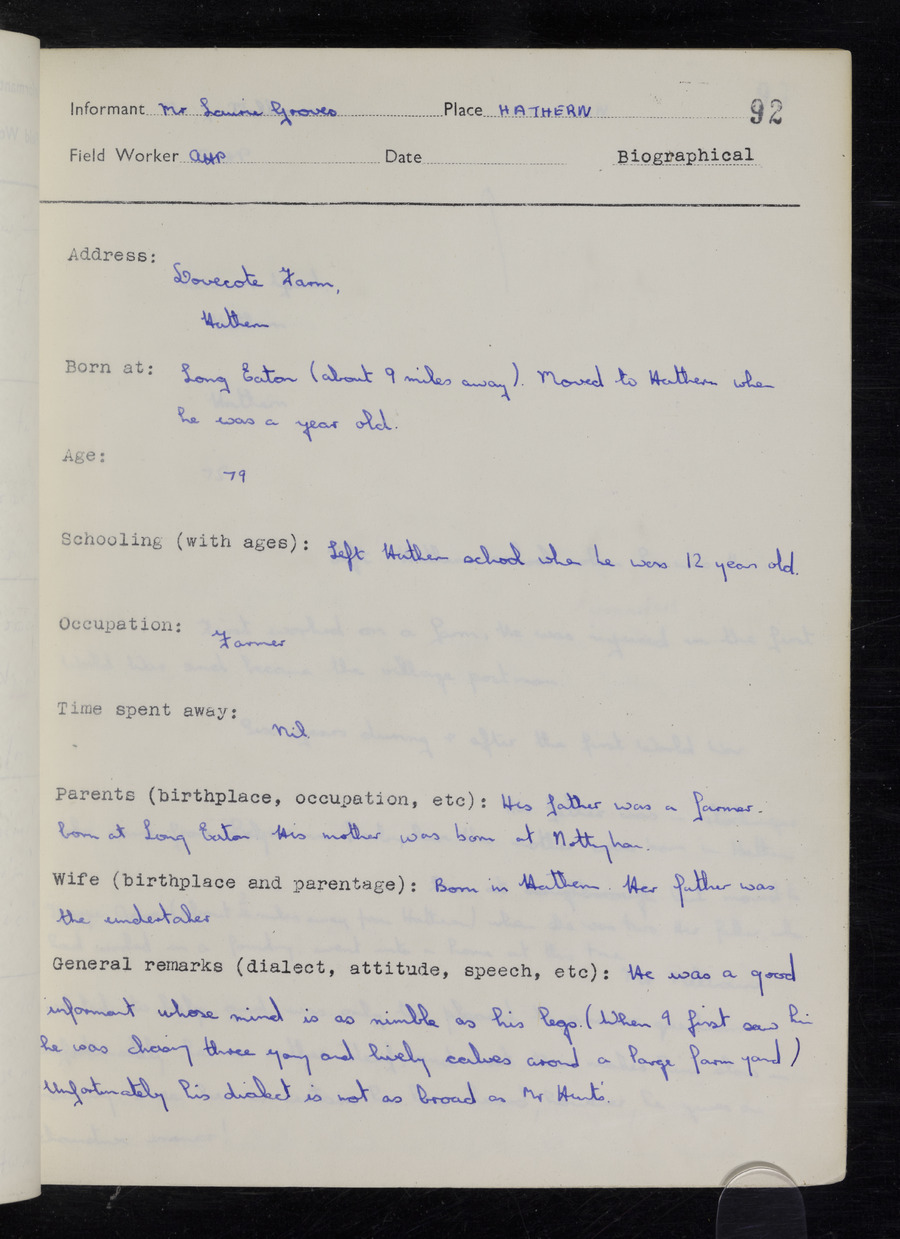 Informant Mr Laurie Groves Place HATHERN 92
Field Worker AHP Date Biographical
Address:
Dovecote Farm,
Hathern
Born at: Long Eaton (about 9 miles away). Moved to Hathern when
he was a year old.
Age:
79
Schooling (with ages): Left Hathern school when he was 12 years old.
Occupation:
Farmer
Time spent away:
Nil
Parents (birthplace, occupation, etc): His father was a farmer.
born at Long Eaton His mother was born at Nottingham.
Wife (birthplace and parentage): Born in Hathern. Her father was
the undertaker
General remarks (dialect, attitude, speech, etc): He was a good
informant whose mind is as nimble as his legs. (When I first saw him
he was chasing three young and lively calves around a large farm yard)
Unfortunately his dialect is not as broad as Mr Hunt's.